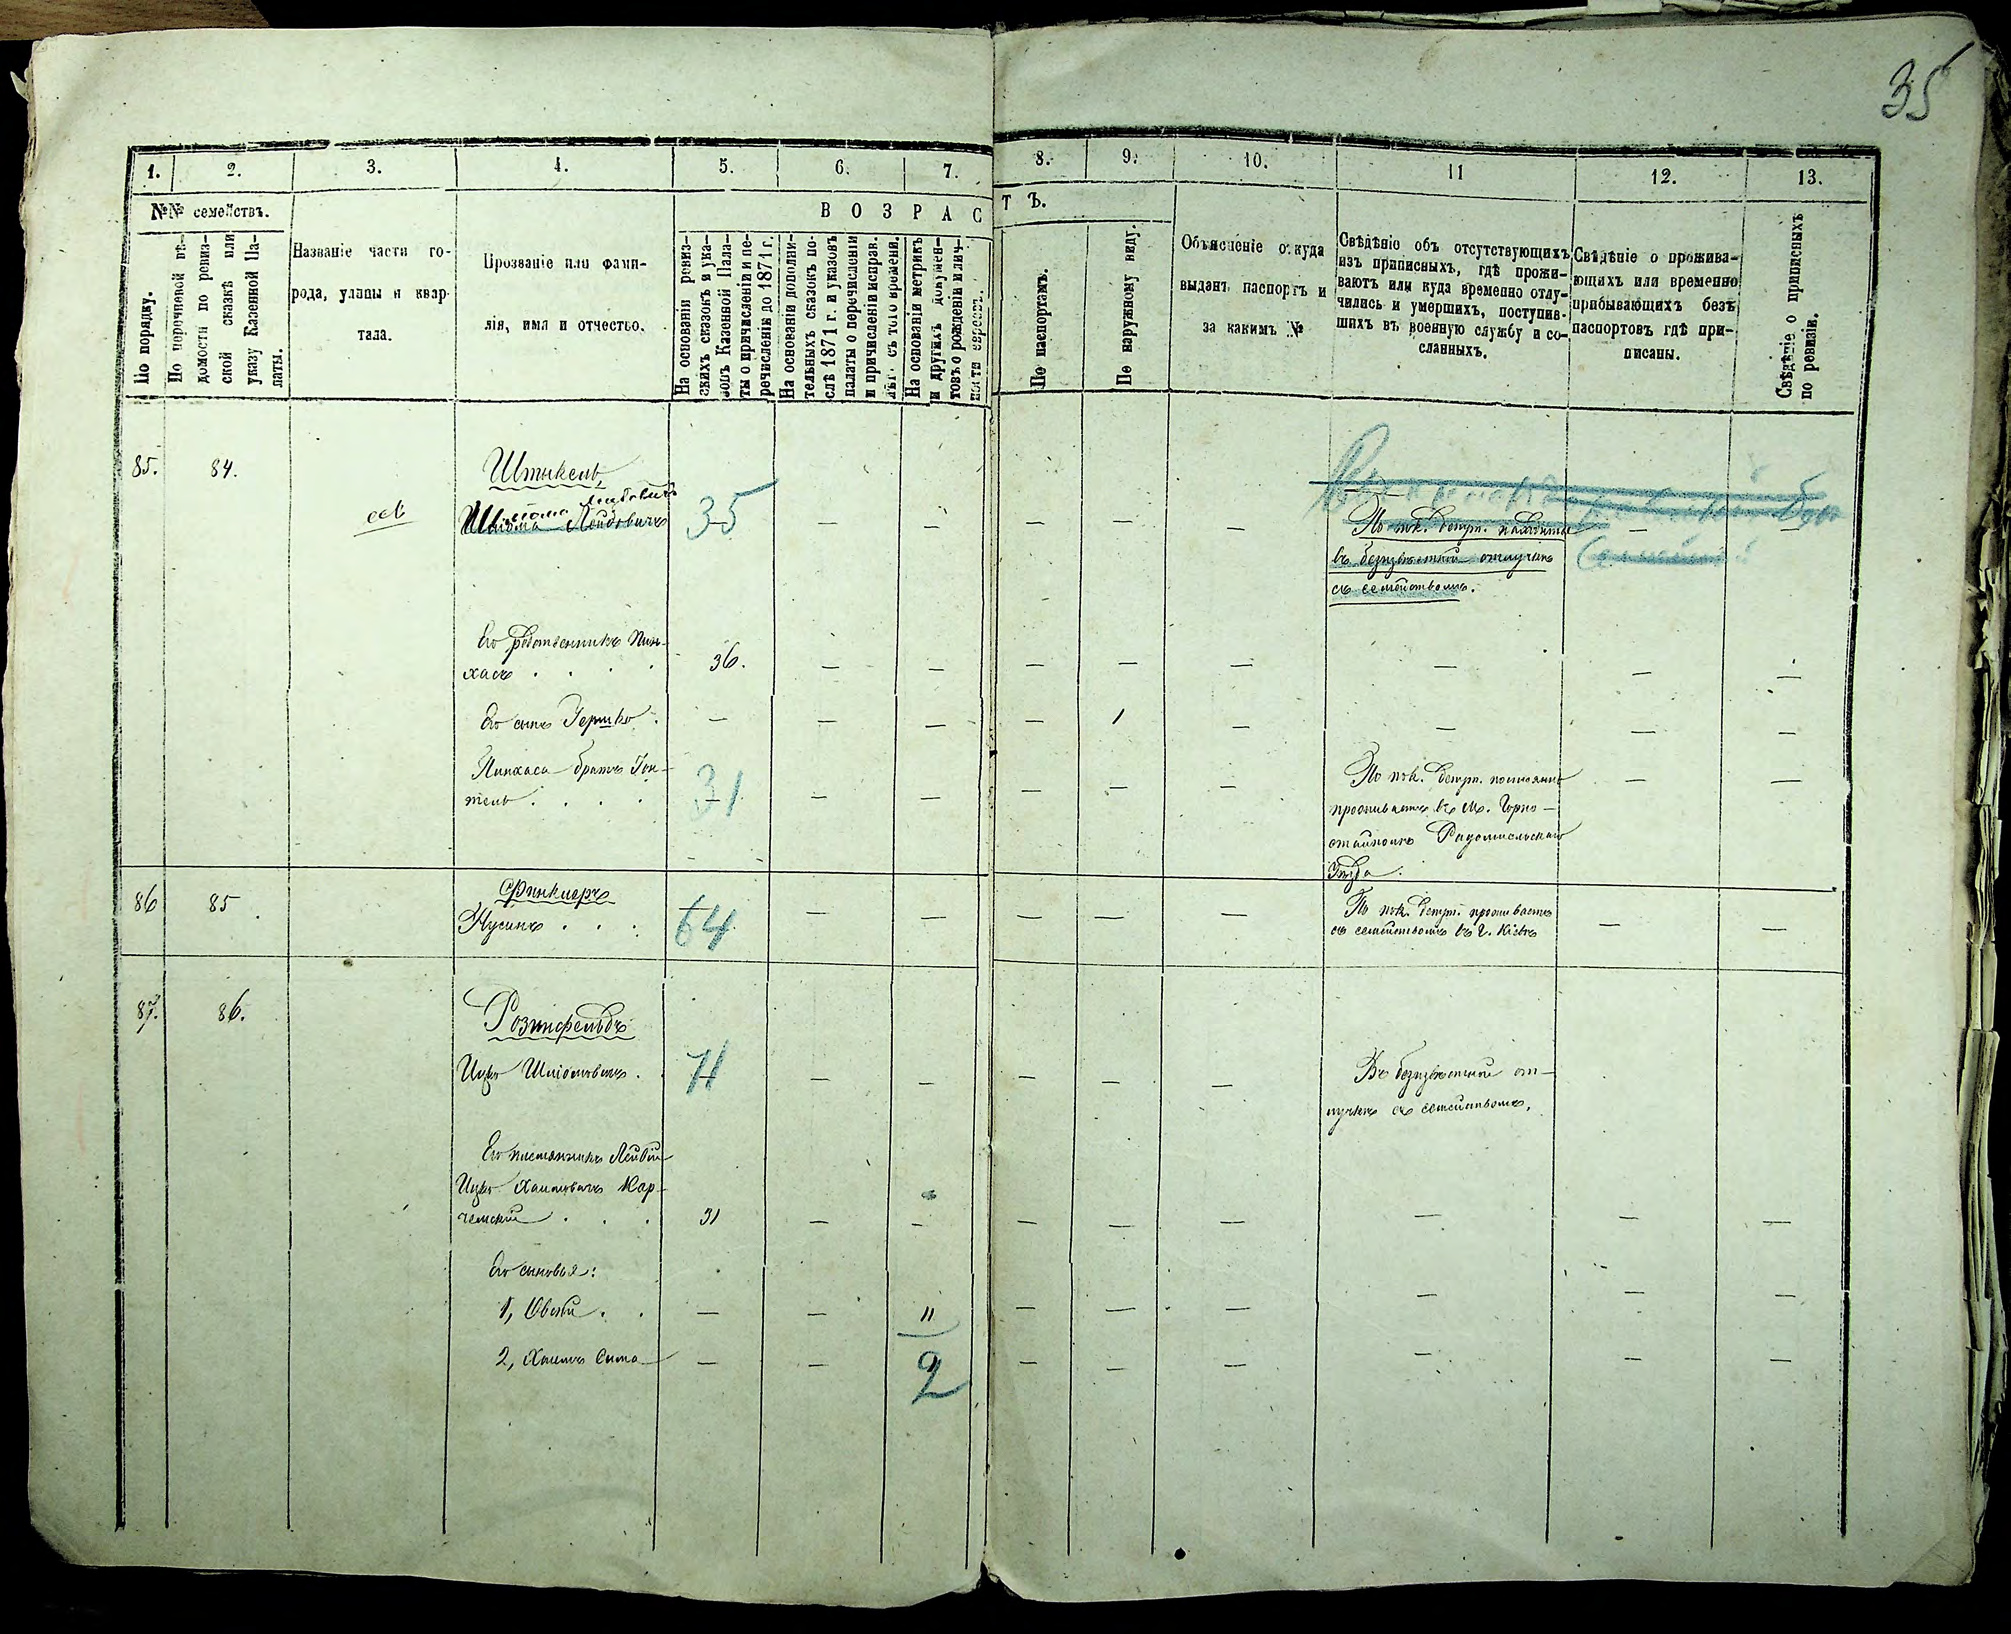 35
1. 2. 3. 4. 5. 6. 7. 8. 9. 10. 11 12. 13.
№№ семействъ.
ВОЗРАСТЪ.
По порядку.
По перечневой вѣ-
домости по ревиз-
ской сказкѣ или
указу Казенной Па-
латы.
Названіе части го-
рода, улицы и квар-
тала.
Прозваніе или фами-
лія, имя и отчество.
На основаніи ревиз-
скихъ сказокъ и ука-
зовъ Казенной Пала-
ты о причисленіи и пе-
речисленіи до 1871 г.
На основаніи дополни-
тельныхъ сказокъ по-
слѣ 1871 г. и указовъ
палаты о перечисленіи
и причисленіи исправ.
лѣтъ съ того времени.
На основаніи метрикъ
и другихъ докумен-
товъ о рожденіи и лич-
По паспортамъ.
По наружному виду.
Объясненіе откуда
выданъ паспортъ и
за какимъ №
Свѣдѣніе объ отсутствующихъ
изъ приписныхъ, гдѣ прожи-
ваютъ или куда временно отлу-
чились и умершихъ, поступив-
шихъ въ военную службу и со-
сланныхъ.
Свѣдѣніе о прожива-
ющихъ или временно
прибывающихъ безъ
паспортовъ гдѣ при-
писаны.
Свѣдѣніе о приписныхъ
по ревизіи.
85. 84. Штыкель,
Лейбовичъ
Шліома Лейбовичъ 35 — — — — — По пок. депут. находится — —
въ безизвѣстной отлучкѣ
съ семействомъ.
Его родственникъ Пин-
хасъ . . . . 36. — — — — — — — —
Его сынъ Гершко . — — — — 1 — — — —
Пинхаса братъ Іон-
тель . . . . 31 — — — — — По пок. депут. постоянно — —
проживаетъ въ м. Горно-
стайполѣ Радомысльскаго
Уѣзда.
86 85. Финклеръ
Нусинъ . . . 64 — — — — — По пок. депут. проживаетъ — —
съ семействомъ въ г. Кіевѣ
87. 86. Розинфельдъ
Ицко Шліомовичъ . . 71 — — — — — Въ безизвѣстной от-
лучкѣ съ семействомъ.
Его племянникъ Лейбиш
Ицко Хаимовичъ Кор-
чемскій . . . 31 — — — — — — — —
Его сыновья:
1, Овсій . . — — 11 — — — — — —
2, Хаимъ Сима — — 2 — — — — — —